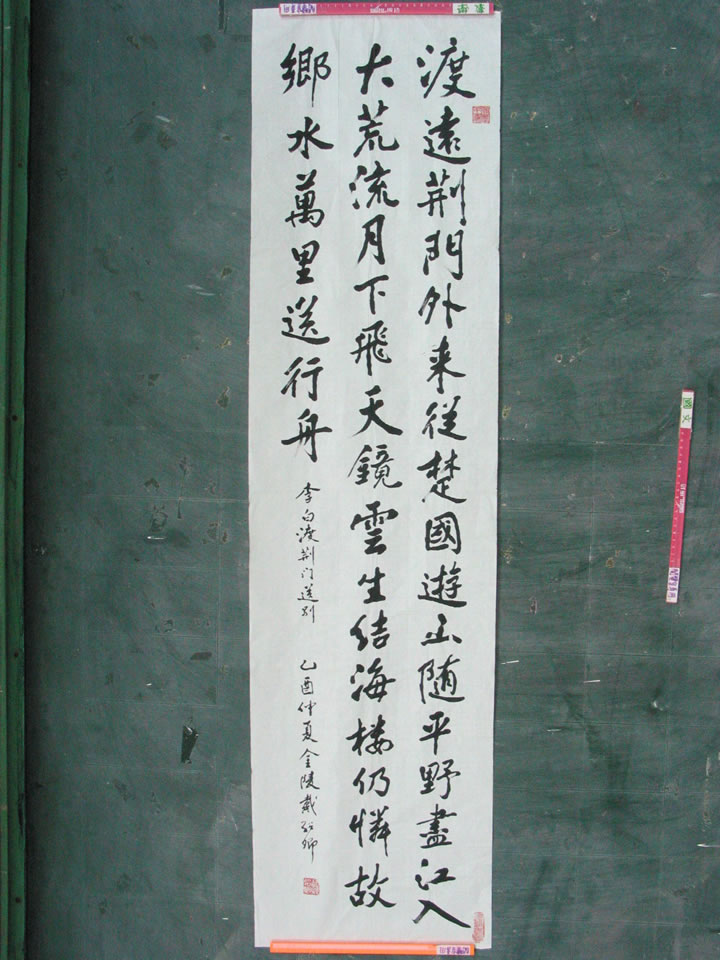 渡遠荆門外来從楚國遊山随平野盡江入
大荒流月下飛天鏡雲生结海楼仍憐故
鄉水萬里送行舟
李白渡荆门送别
乙酉仲夏金陵戴
國文